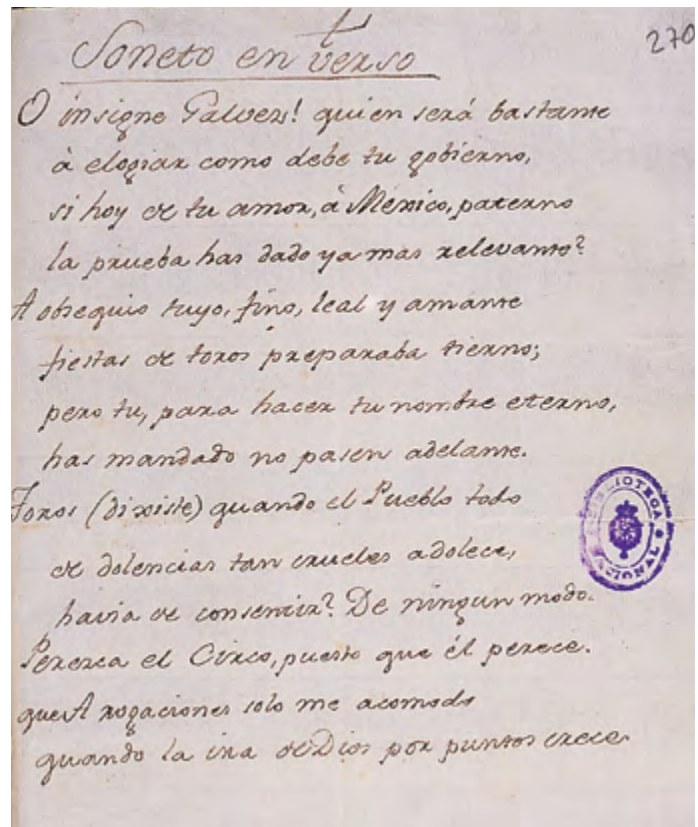 270
Soneto en verso
O insigne Galvez! quien será bastante
à elogiar como debe tu gobierno,
si hoy de tu amor, à México, paterno
la prueba has dado ya mas relevante?
A obsequio tuyo, fino, leal y amante
fiestas de toros preparaba tierno;
pero tu, para hacer tu nombre eterno,
has mandado no pasen adelante.
Toros (dixiste) quando el Pueblo todo
de dolencias tan crueles adolece,
havia de consentir? De ningun modo.
Perezca el Circo, puesto que él perece.
que A rogaciones solo me acomodo
quando la ira de Dios por puntos crece.
BIBLIOTECA
NACIONAL